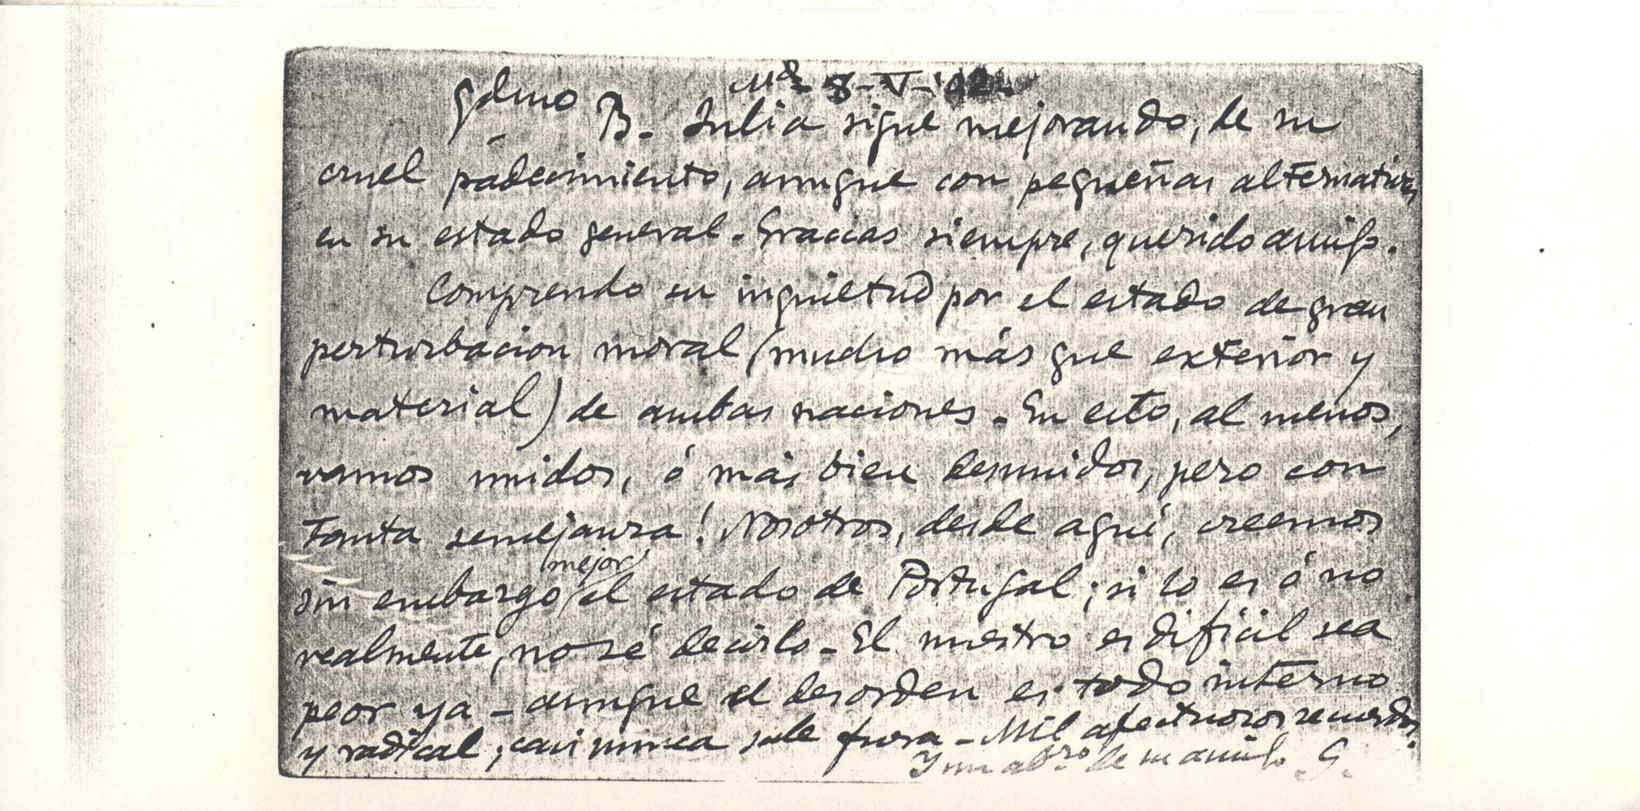 Md 8-V-'12.
Qdmo B. Julia sigue mejorando, de su
cruel padecimiento, aunque con pequeñas alternativas
en su estado general. Gracias siempre, querido amigo.
Comprendo su inquietud por el estado de gran
perturbacion moral (mucho más que exterior y
material) de ambas naciones. En esto, al menos,
vamos unidos, ó más bien desunidos, pero con
tanta semejanza! Nosotros, desde aquí, creemos
mejor
sin embargo el estado de Portugal; si lo es ó no
realmente, no sé decirlo. El nuestro es dificil sea
peor ya - aunque el desorden es todo interno
y radical; casi nunca sale fuera - Mil afectuosos recuerdos
Y un abzo de su amigo. G.